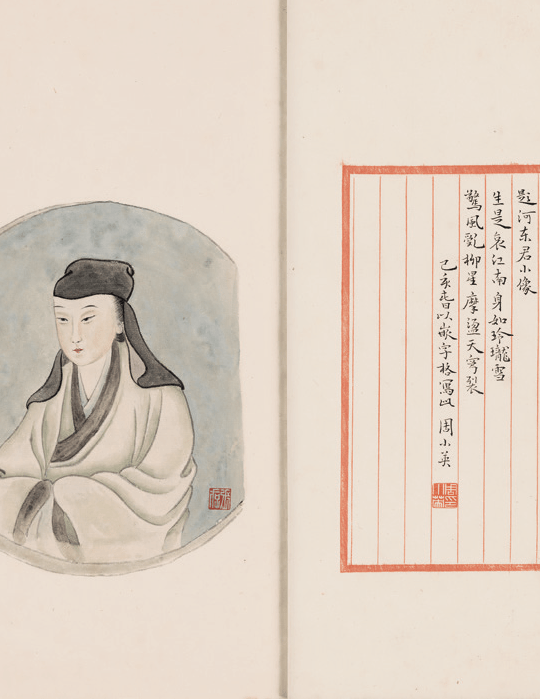 题河东君小像
生是哀江南身如玲瓏雪
驚風亂柳星摩盪天穹裂
己亥春以嵌字格寫此 周小英